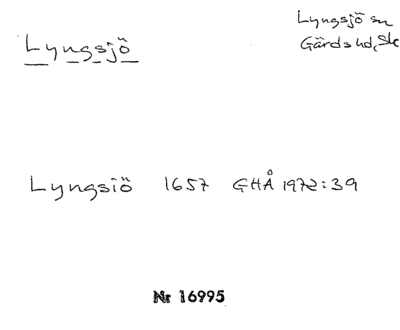 Lyngsjö
Lyngsjö sn
Gärds hd, Sk
Lyngsiö 1657 GHÅ 1972:39
Nr 16995